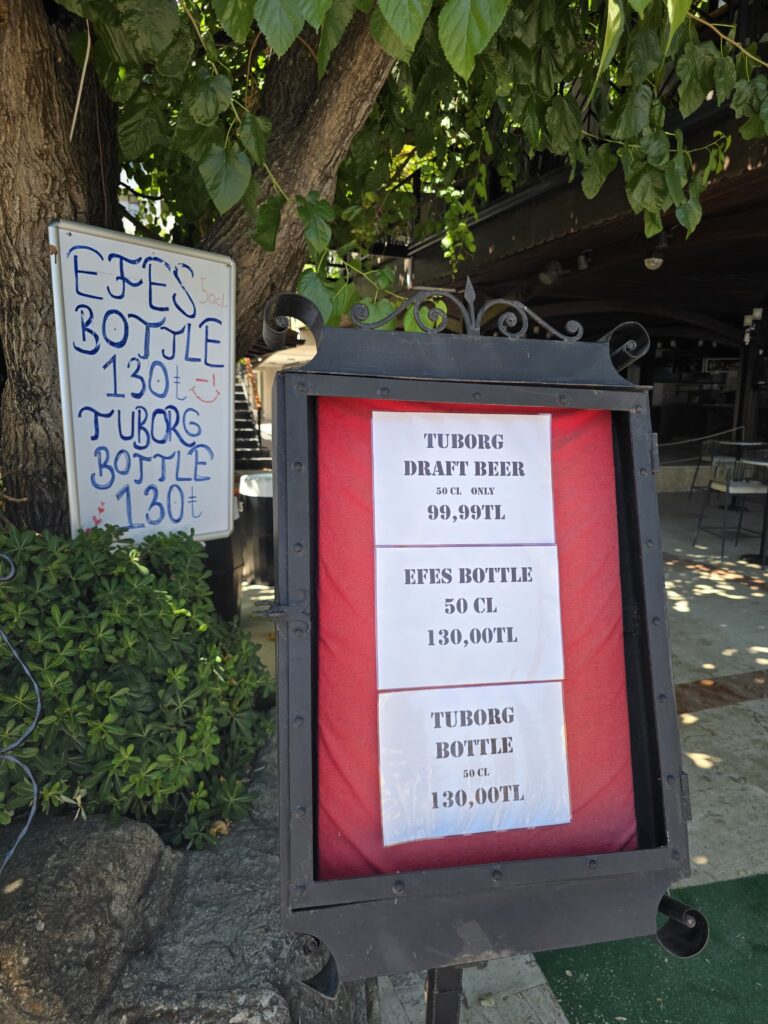 EFES 50CL
BOTTLE
130₺
TUBORG
BOTTLE
130₺
TUBORG
DRAFT BEER
50 CL ONLY
99,99TL
EFES BOTTLE
50 CL
130,00TL
TUBORG
BOTTLE
50 CL
130,00TL